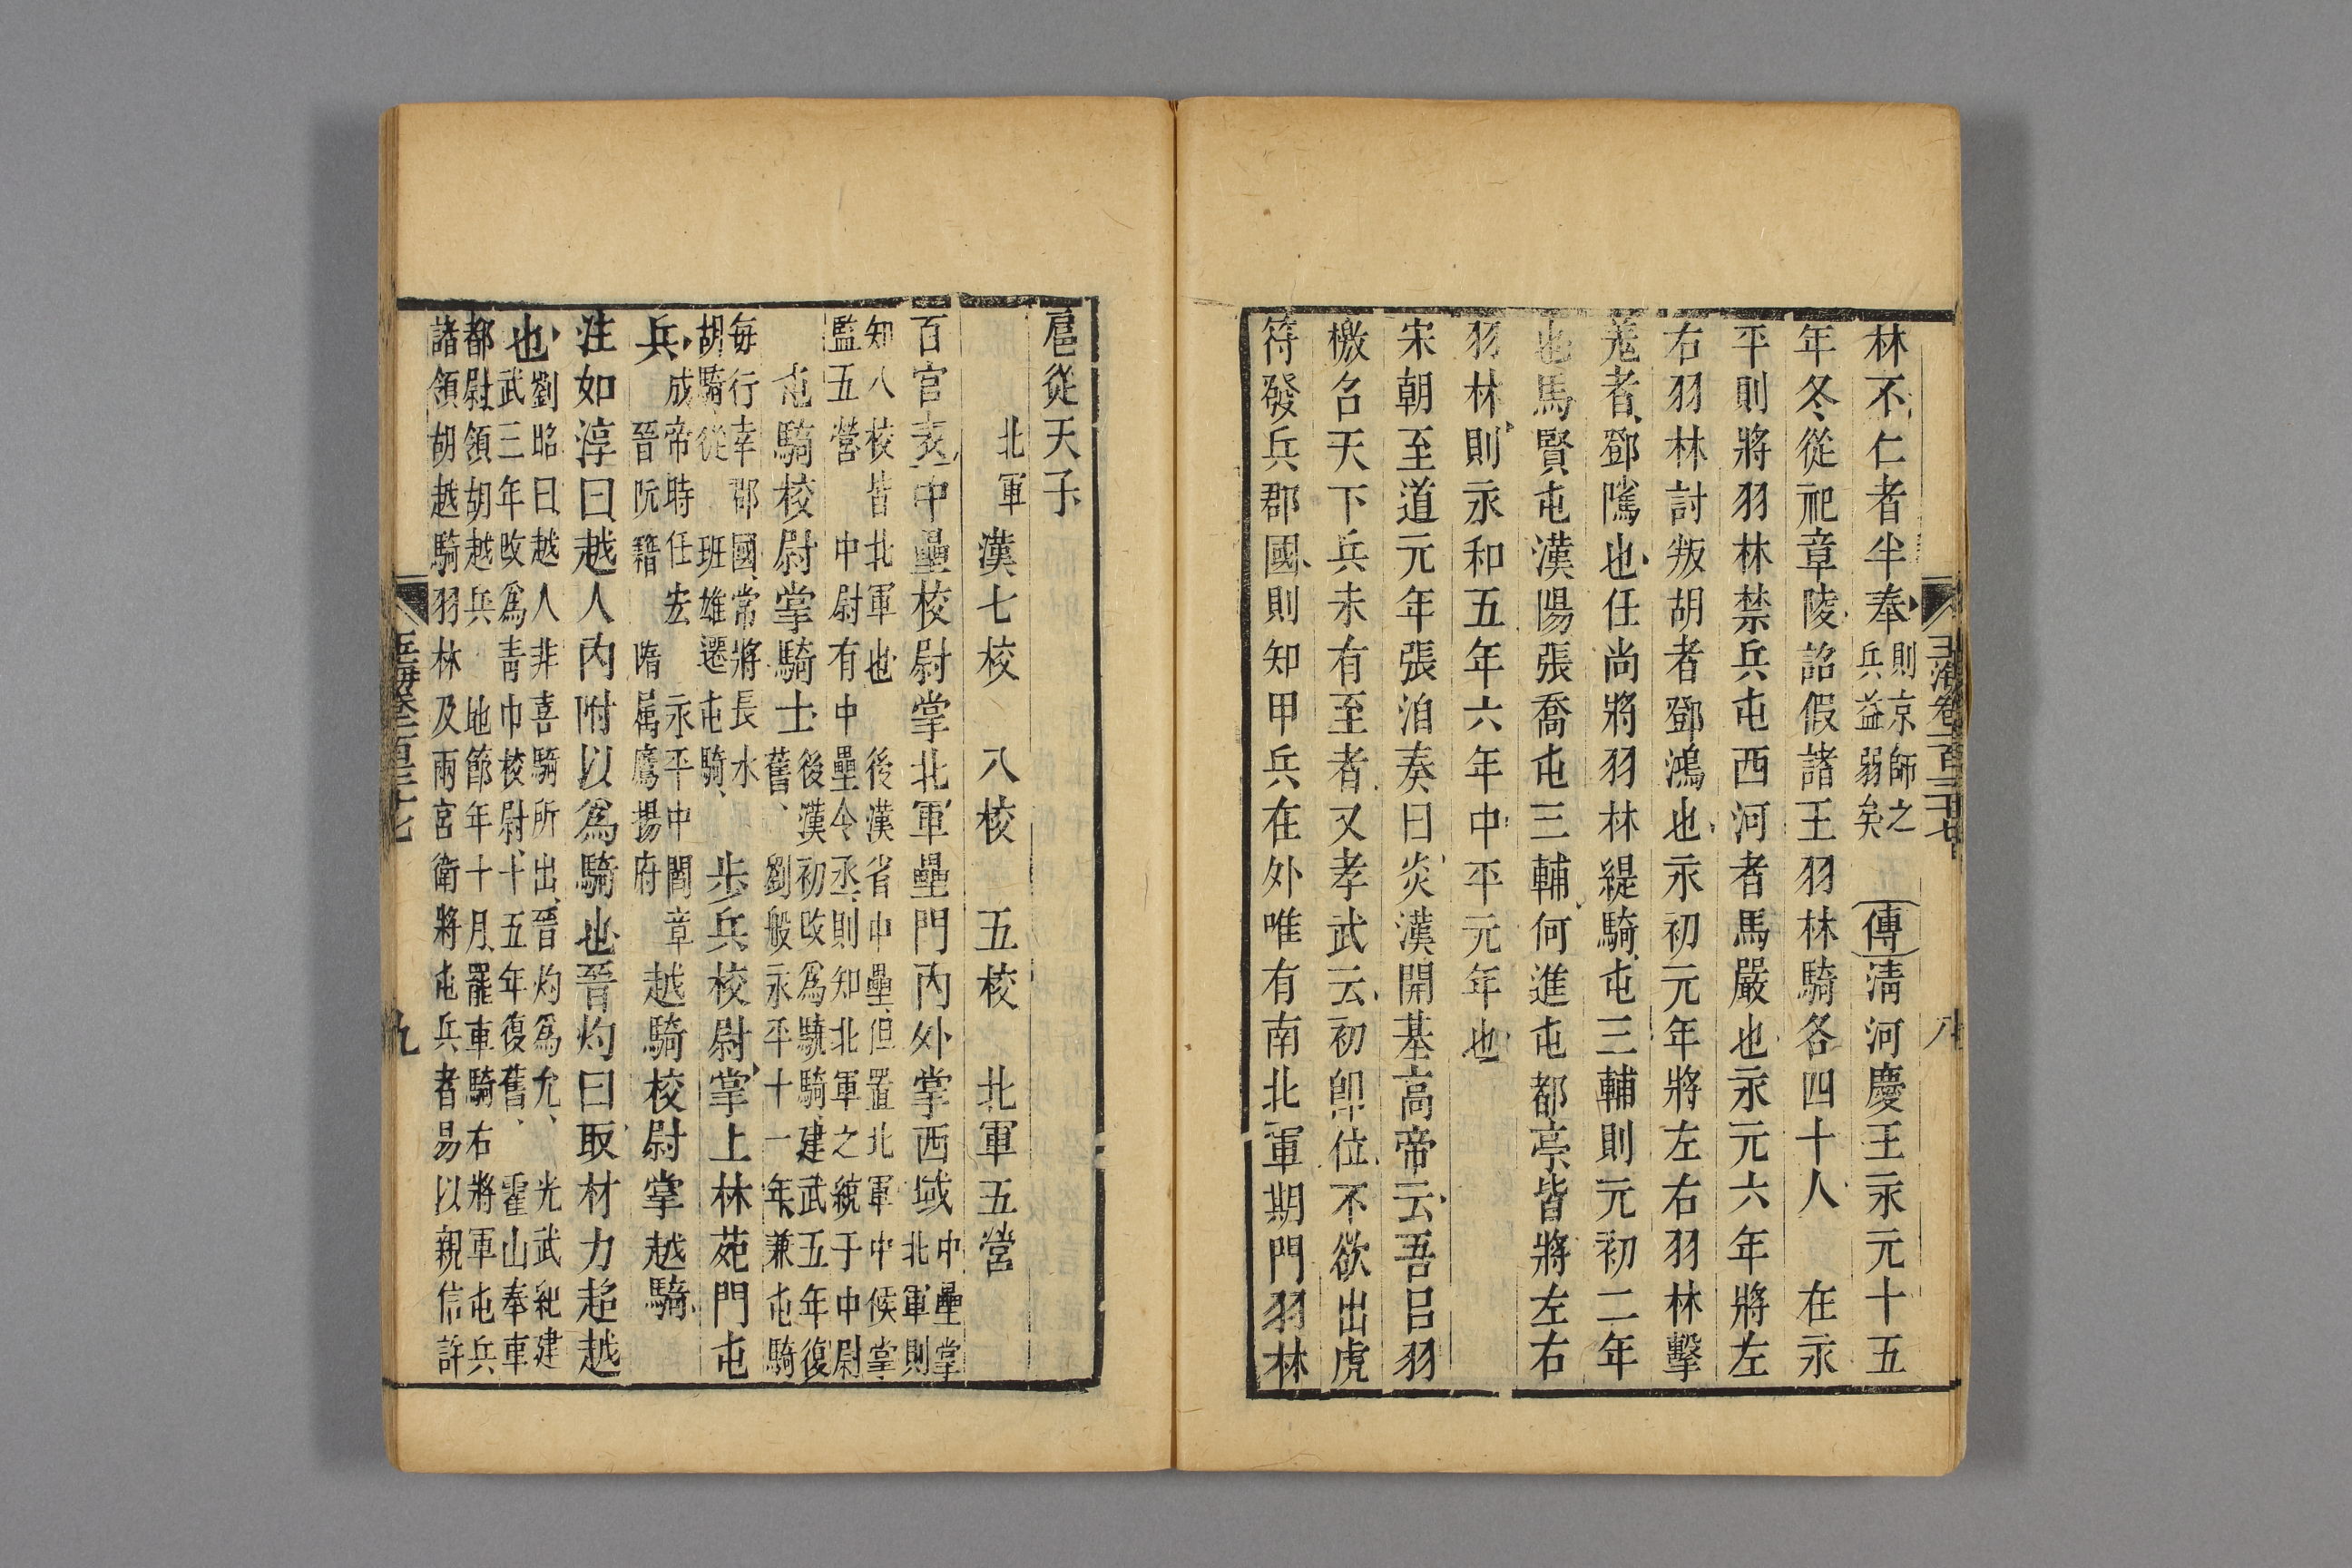 林不仁者半奉則京師之兵益弱矣 傳清河慶王永元十五
年冬從祀章陵詔假諸王羽林騎各四十人 在永
平則將羽林禁兵屯西河者馬嚴也永元六年將左
右羽林討叛胡者鄧鴻也永初元年將左右羽林擊
羗者鄧隲也任尚將羽林緹騎屯三輔則元初二年
也馬賢屯漢陽張喬屯三輔何進屯都亭皆將左右
羽林則永和五年六年中平元年也
宋朝至道元年張洎奏曰炎漢開基高帝云吾吕羽
檄名天下兵未有至者又孝武云初卽位不欲出虎
符發兵郡國則知甲兵在外唯有南北軍期門羽林
玉海卷一百三十七 八
扈從天子
北軍 漢七校 八校 五校 北軍五營
百官表中壘校尉掌北軍壘門內外掌西域中壘掌北軍則
知八校皆北軍也 後漢省中壘但置北軍中候掌
監五營 中尉有中壘令丞則知北軍之統于中尉
屯騎校尉掌騎士後漢初改爲驍騎建武五年復舊劉般永平十一年兼屯騎
每行幸郡國常將長水胡騎從 班雄遷屯騎 步兵校尉掌上林苑門屯
兵成帝時任宏 永平中閻章晉阮籍 隋屬鷹揚府 越騎校尉掌越騎
注如淳曰越人內附以爲騎也晉灼曰取材力超越
也劉昭曰越人非喜騎所出晉灼爲允 光武紀建
武三年改爲青巾校尉十五年復舊 霍山奉車
都尉領胡越兵 地節年十月罷車騎右將軍屯兵
諸領胡越騎羽林及兩宮衛將屯兵者易以親信許
玉海卷一百三十七 九